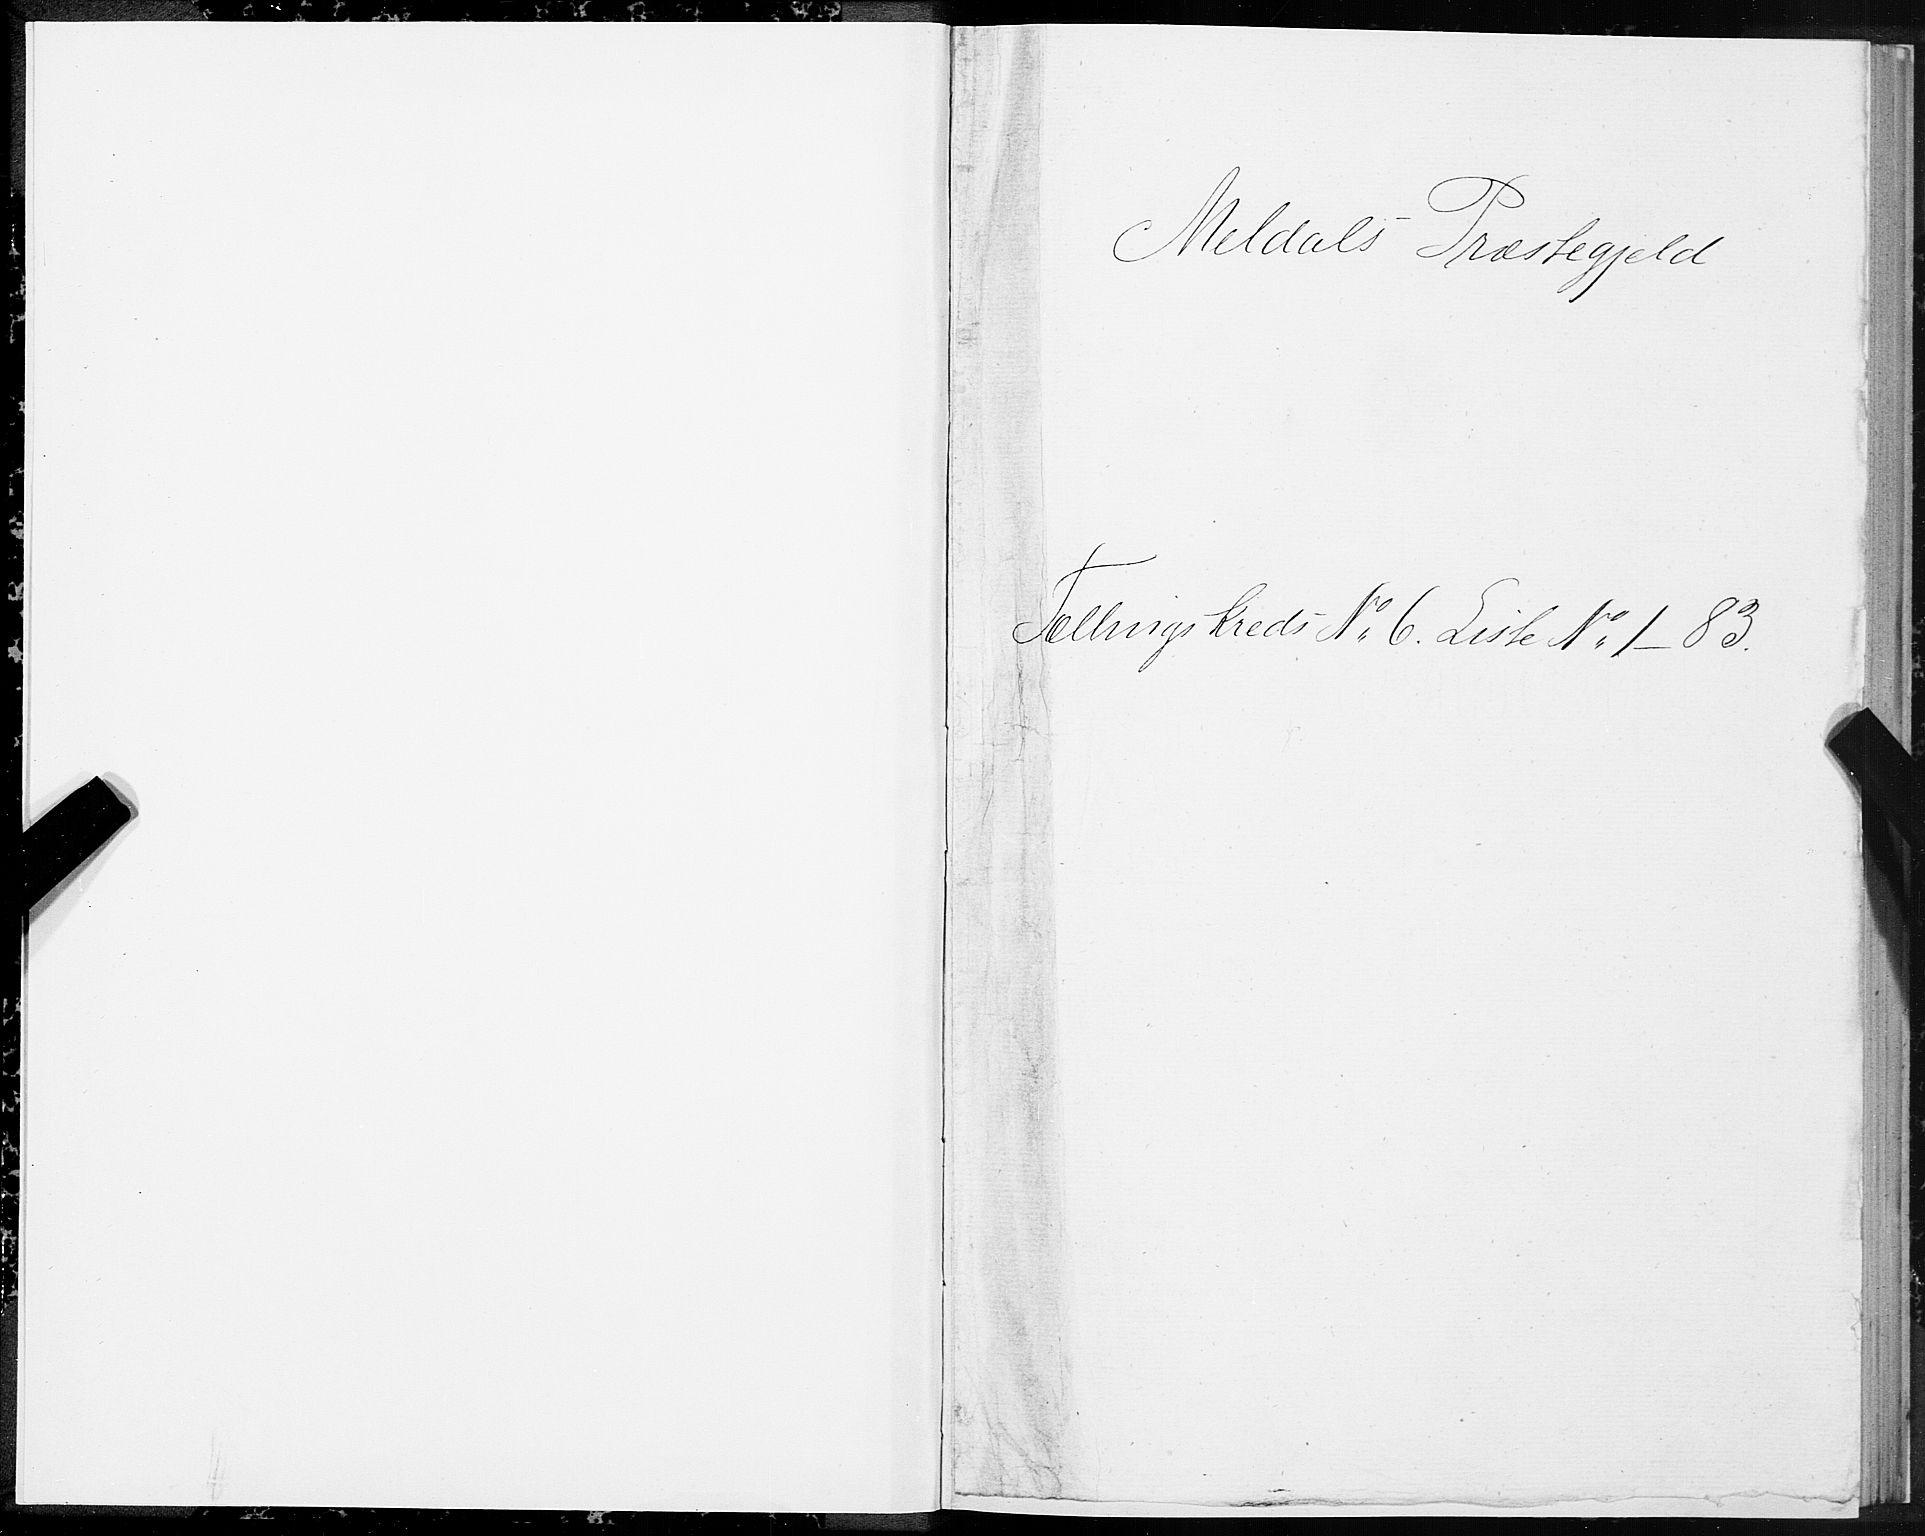 Meldals Præstegjeld
Tællingskreds No. 6. Liste No. 1 – 83.